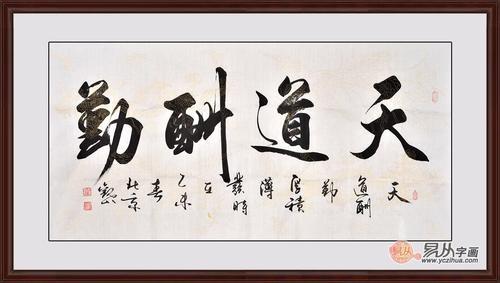 天道酬勤
天
道酬
勤
厚積
薄
發時
在
乙未
春
北京
易从字画
www.yczihua.com